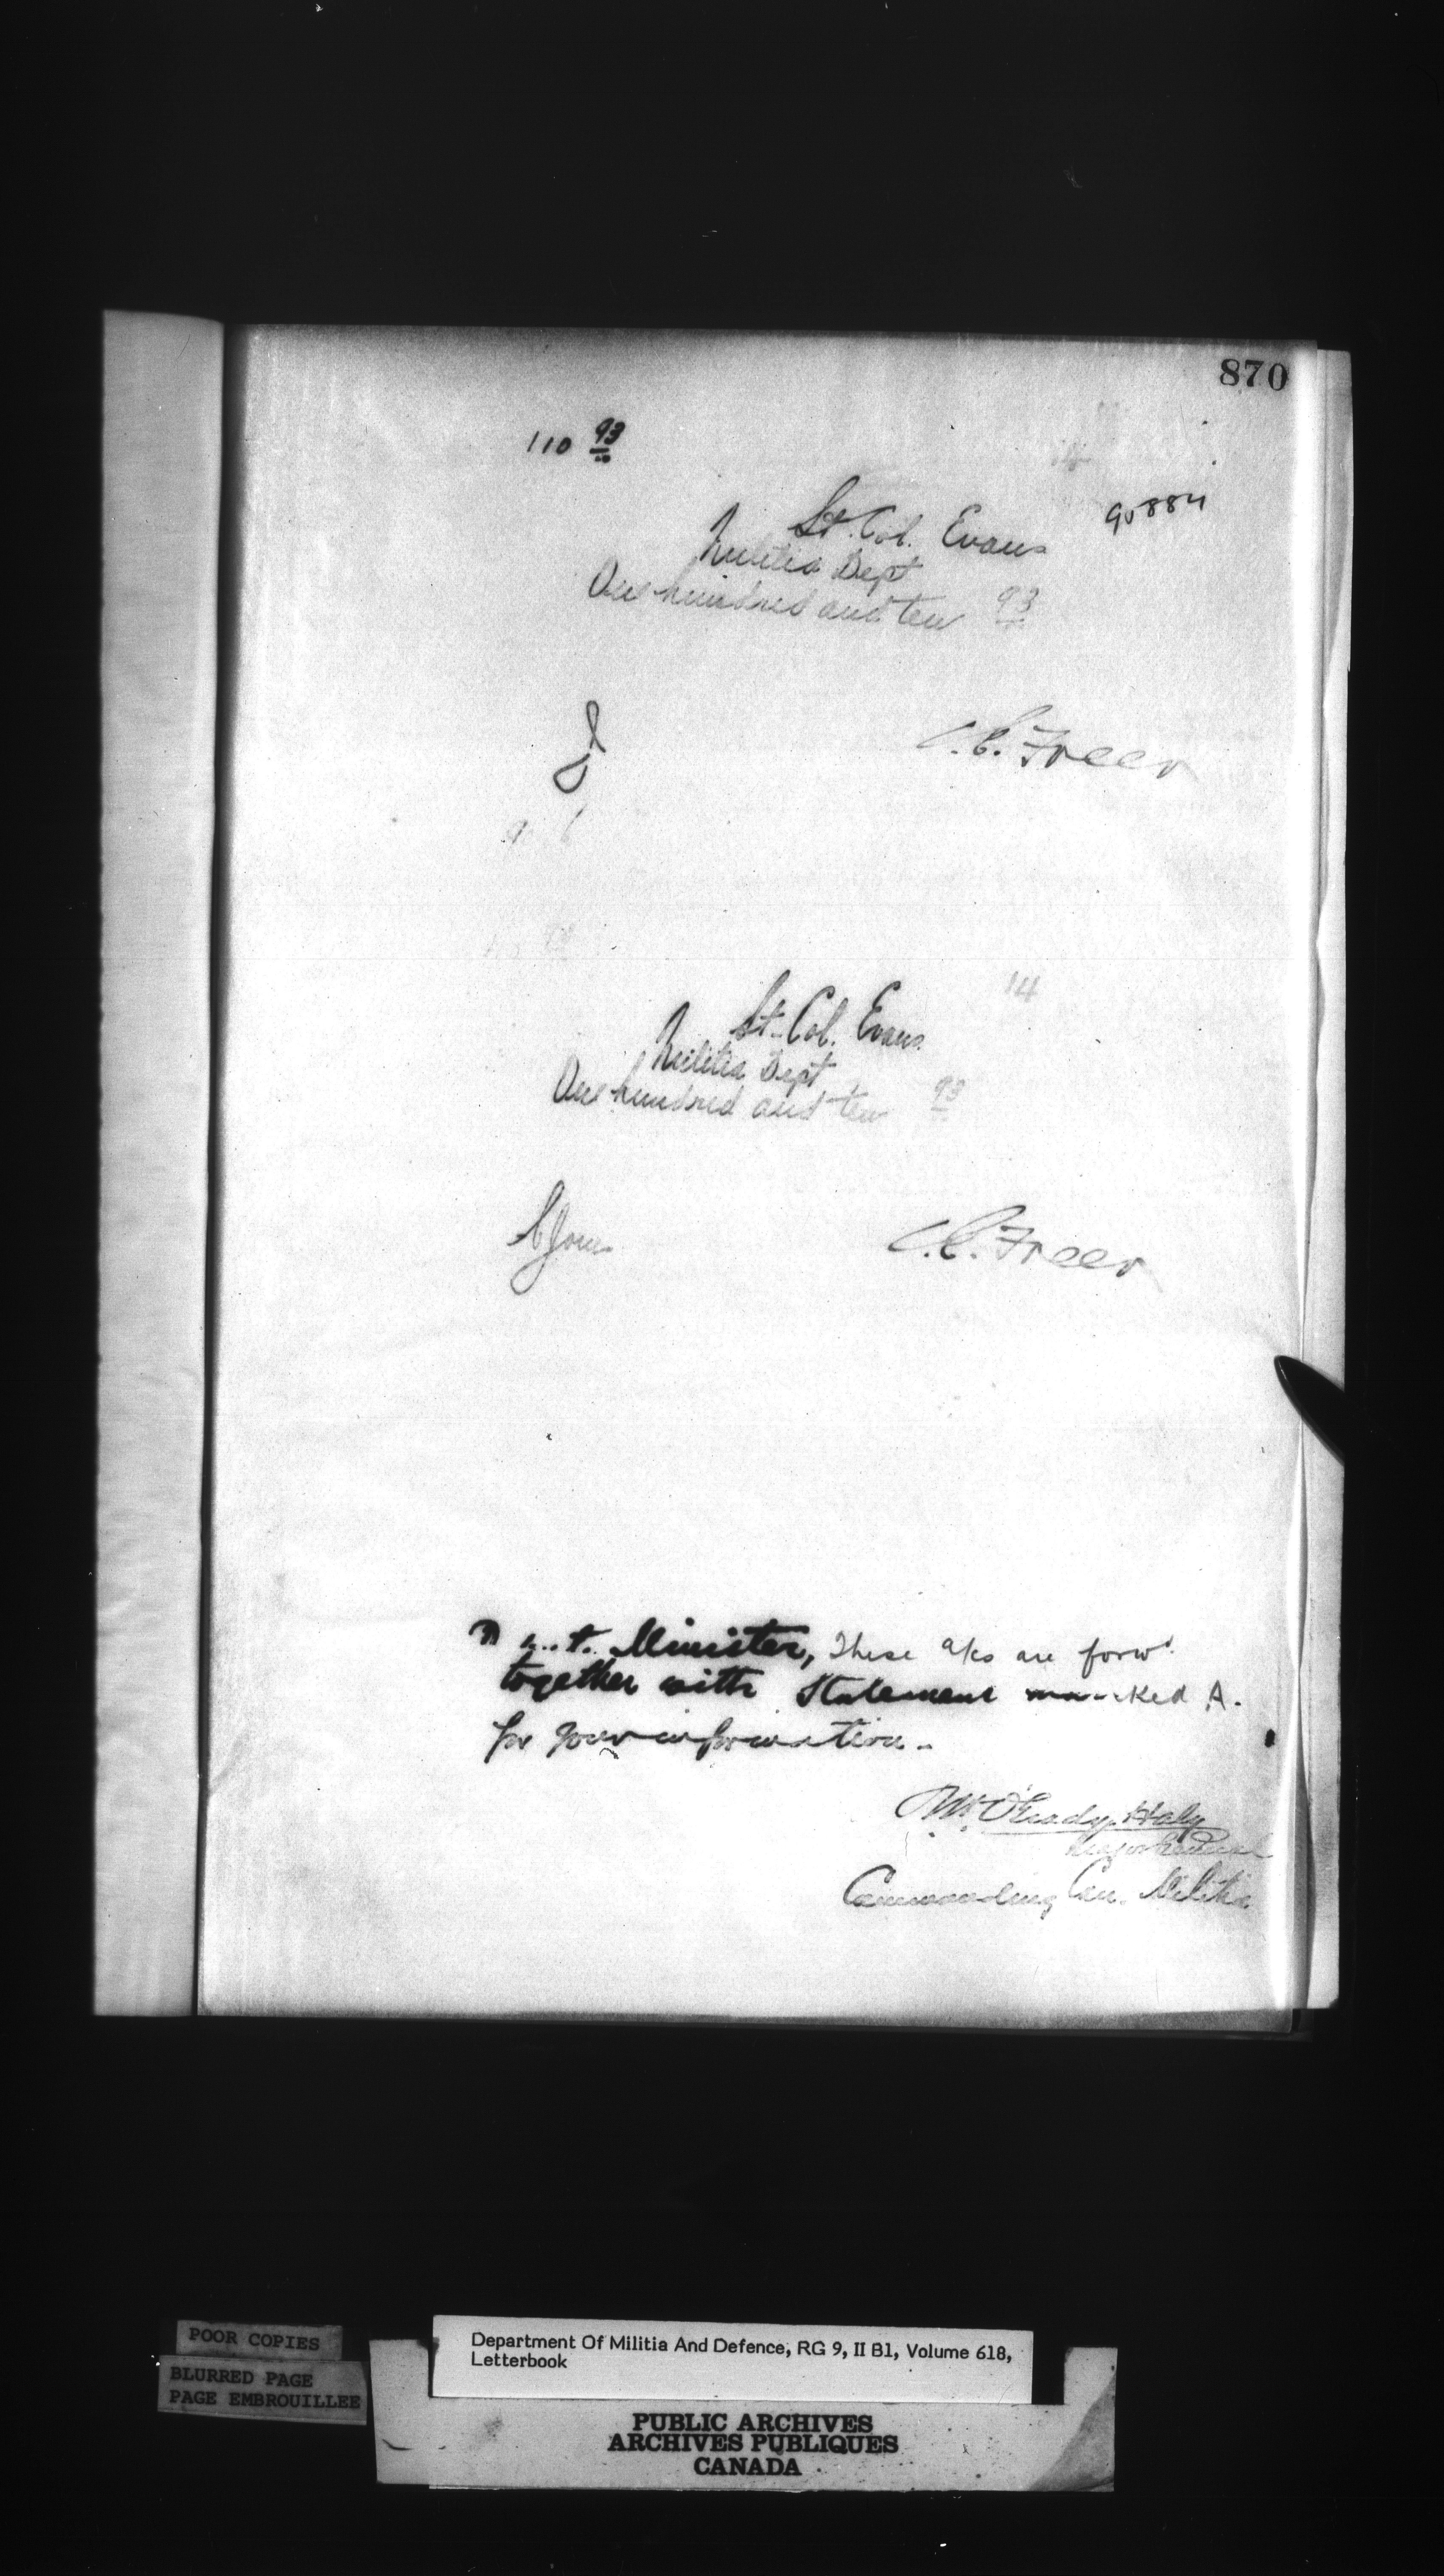 870
110 93
Lt. Col. Evans 90884
Militia Dept
One hundred and ten 93
C.C. Freer
14
Lt. Col. Evans
Militia Dept
One hundred and ten 93
C.C. Freer
Minister, These a/cs are forwd
together with Statement marked A.
for your information.
O'Grady-Haly
Major General
Commanding Can. Militia
POOR COPIES
BLURRED PAGE
PAGE EMBROUILLEE
Department Of Militia And Defence, RG 9, II B1, Volume 618,
Letterbook
PUBLIC ARCHIVES
ARCHIVES PUBLIQUES
CANADA